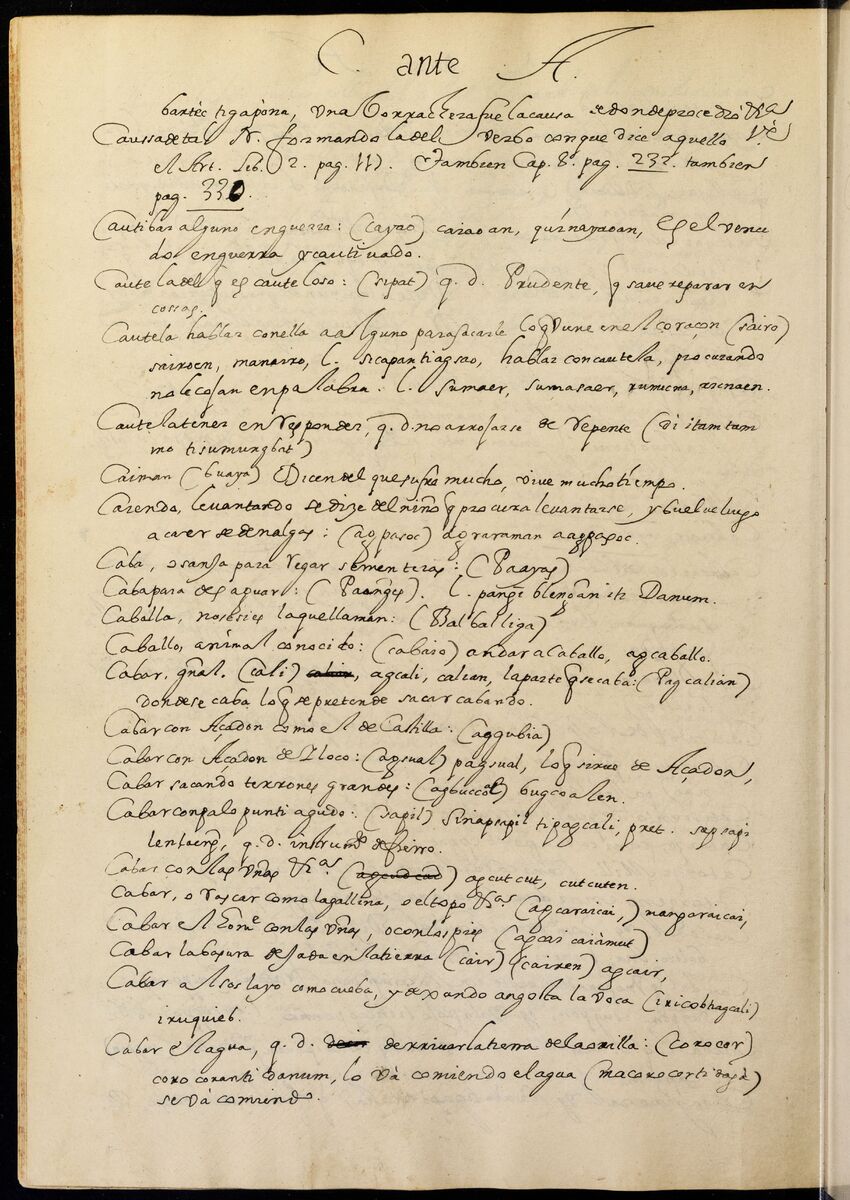 C. ante A.
bartèc tigapòna, vna borrachera fue la causa de donde procedió &ª
Caussa de tal N. formando la del verbo con que dice aquello Vè
el Art. Lib. 2. pag. 117. Tambien Cap. 8. pag. 232. tambien
pag. 330.
Cautibar alguno en guerra: (cayao) caiaoan, quinayaoan, Es el venci
do en guerra y cautiuado.
Cautela del q es cauteloso: (sipat) q. d. Prudente, q saue reparar en
cossas.
Cautela hablar con ella a alguno para sacarle lo q tiene en el coraçon (sairo)
sairoen, manairo, l. sicapantiagsao, hablar con cautela, procurando
no le cojan en palabra. l. sumaer, sumasaer,
Cautela tener en responder, q. d. no arrojarse de repente (di itamtam
mo tisumungbat)
Caiman (buaya) Dicen del que sufre mucho, vive mucho tiempo.
Caiendo, levantando se dize del niño q procura levantarse, y buelue luego
a caer se de nalgas: (ag pasoc) agraraman aagpasoc.
Caba, o sanja para regar sementeras: (Paayas)
Caba para desaguar: (Paanges). l. pangi blengan iti Danum.
Caballa, nosesies la que llaman: (Balballiga)
Caballo, animal conocido: (cabaio) andar a Caballo, agcaballo.
Cabar, gñal. (cali) agcali, calian, la parte q se caba: (Pagcalian)
donde se caba lo q se pretende sacar cabando.
Cabar con Açadon como el de Castilla: (aggubia)
Cabar con Açadon de Iloco: (agsual) pagsual, lo q sirue de Açadon,
Cabar sacando terrones grandes: (agbuccal) bugcoalen.
Cabar con palo puntiagudo: (sapil) sinapsapil tipagcali, pret. sapsapi
lentaeng, q. d. instrumto de fierro.
Cabar con las vñas &ª (agcudcud) agcutcut, cutcuten.
Cabar, o rascar como la gallina, o el topo &ªs (agcaraicai,) nangaraicai,
Cabar el hone con las vñas, o con los pies (agcai cairimut)
Cabar la basura dejada en la tierra (cair) (cairen) agcair,
Cabar al soslayo como cueba, y dexando angosta la voca (iricobtagcali)
iruquieb.
Cabar el agua, q. d. derriuar la tierra de la orilla: (corocor)
coro coranti danum, lo và comiendo el agua (macorocorti dagà)
se và comiendo.